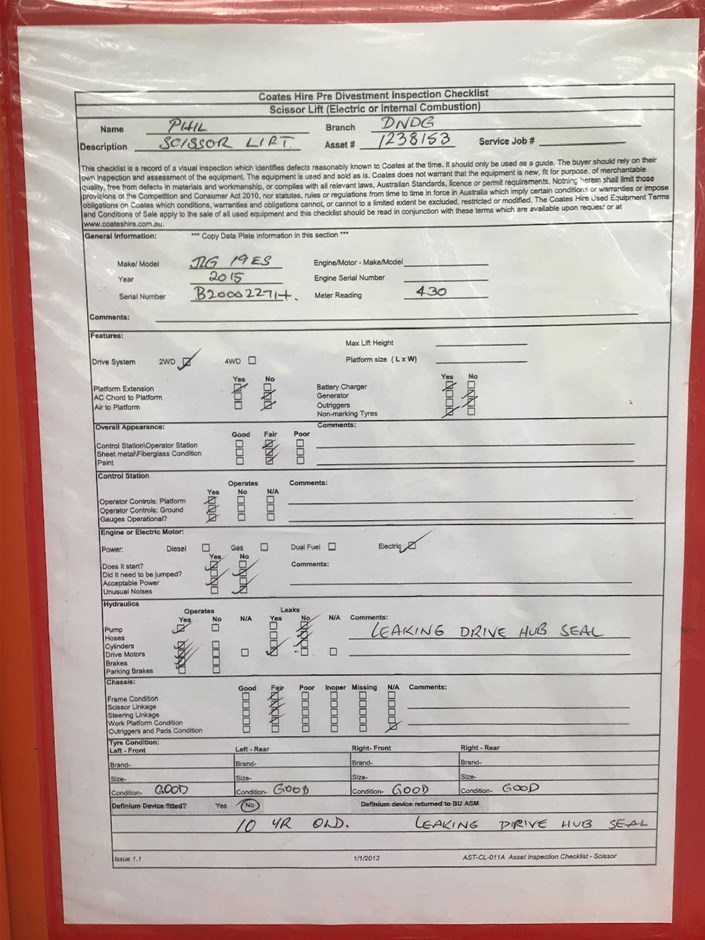 Coates Hire Pre Divestment Inspection Checklist
Scissor Lift (Electric or Internal Combustion)
Name PHIL Branch DNDG
Description SCISSOR LIFT. Asset # 1238153 Service Job #
This checklist is a record of a visual inspection which identifies defects reasonably known to Coates at the time. It should only be used as a guide. The buyer should rely on their
own inspection and assessment of the equipment. The equipment is used and sold as is. Coates does not warrant that the equipment is new, fit for purpose, of merchantable
quality, free from defects in materials and workmanship, or complies with all relevant laws, Australian Standards, licence or permit requirements. Nothing herein shall limit those
provisions of the Competition and Consumer Act 2010, nor statutes, rules or regulations from time to time in force in Australia which imply certain conditions or warranties or impose
obligations on Coates which conditions, warranties and obligations cannot, or cannot to a limited extent be excluded, restricted or modified. The Coates Hire Used Equipment Terms
and Conditions of Sale apply to the sale of all used equipment and this checklist should be read in conjunction with these terms which are available upon request or at
www.coateshire.com.au.
General Information: *** Copy Data Plate Information in this section ***
Make/ Model JLG 19ES Engine/Motor - Make/Model
Year 2015 Engine Serial Number
Serial Number B200022714. Meter Reading 430
Comments:
Features: Max Lift Height
Drive System 2WD 4WD Platform size ( L x W)
Yes No Yes No
Platform Extension Battery Charger
AC Chord to Platform Generator
Air to Platform Outriggers
Non-marking Tyres
Overall Appearance: Comments:
Good Fair Poor
Control Station\Operator Station
Sheet metal/Fiberglass Condition
Paint
Control Station Operates Comments:
Yes No N/A
Operator Controls: Platform
Operator Controls: Ground
Gauges Operational?
Engine or Electric Motor:
Power: Diesel Gas Dual Fuel Electric
Yes No
Does it start? Comments:
Did it need to be jumped?
Acceptable Power
Unusual Noises
Hydraulics Operates Leaks
Yes No N/A Yes No N/A Comments:
Pump LEAKING DRIVE HUB SEAL
Hoses
Cylinders
Drive Motors
Brakes
Parking Brakes
Chassis: Good Fair Poor Inoper Missing N/A Comments:
Frame Condition
Scissor Linkage
Steering Linkage
Work Platform Condition
Outriggers and Pads Condition
Tyre Condition:
Left - Front Left - Rear Right- Front Right - Rear
Brand- Brand- Brand- Brand-
Size- Size- Size- Size-
Condition- GOOD Condition- GOOD Condition- GOOD Condition- GOOD
Definium Device fitted? Yes No Definium device returned to BU ASM
10 YR OLD. LEAKING DIRIVE HUB SEAL
Issue 1.1 1/1/2013 AST-CL-011A Asset Inspection Checklist - Scissor